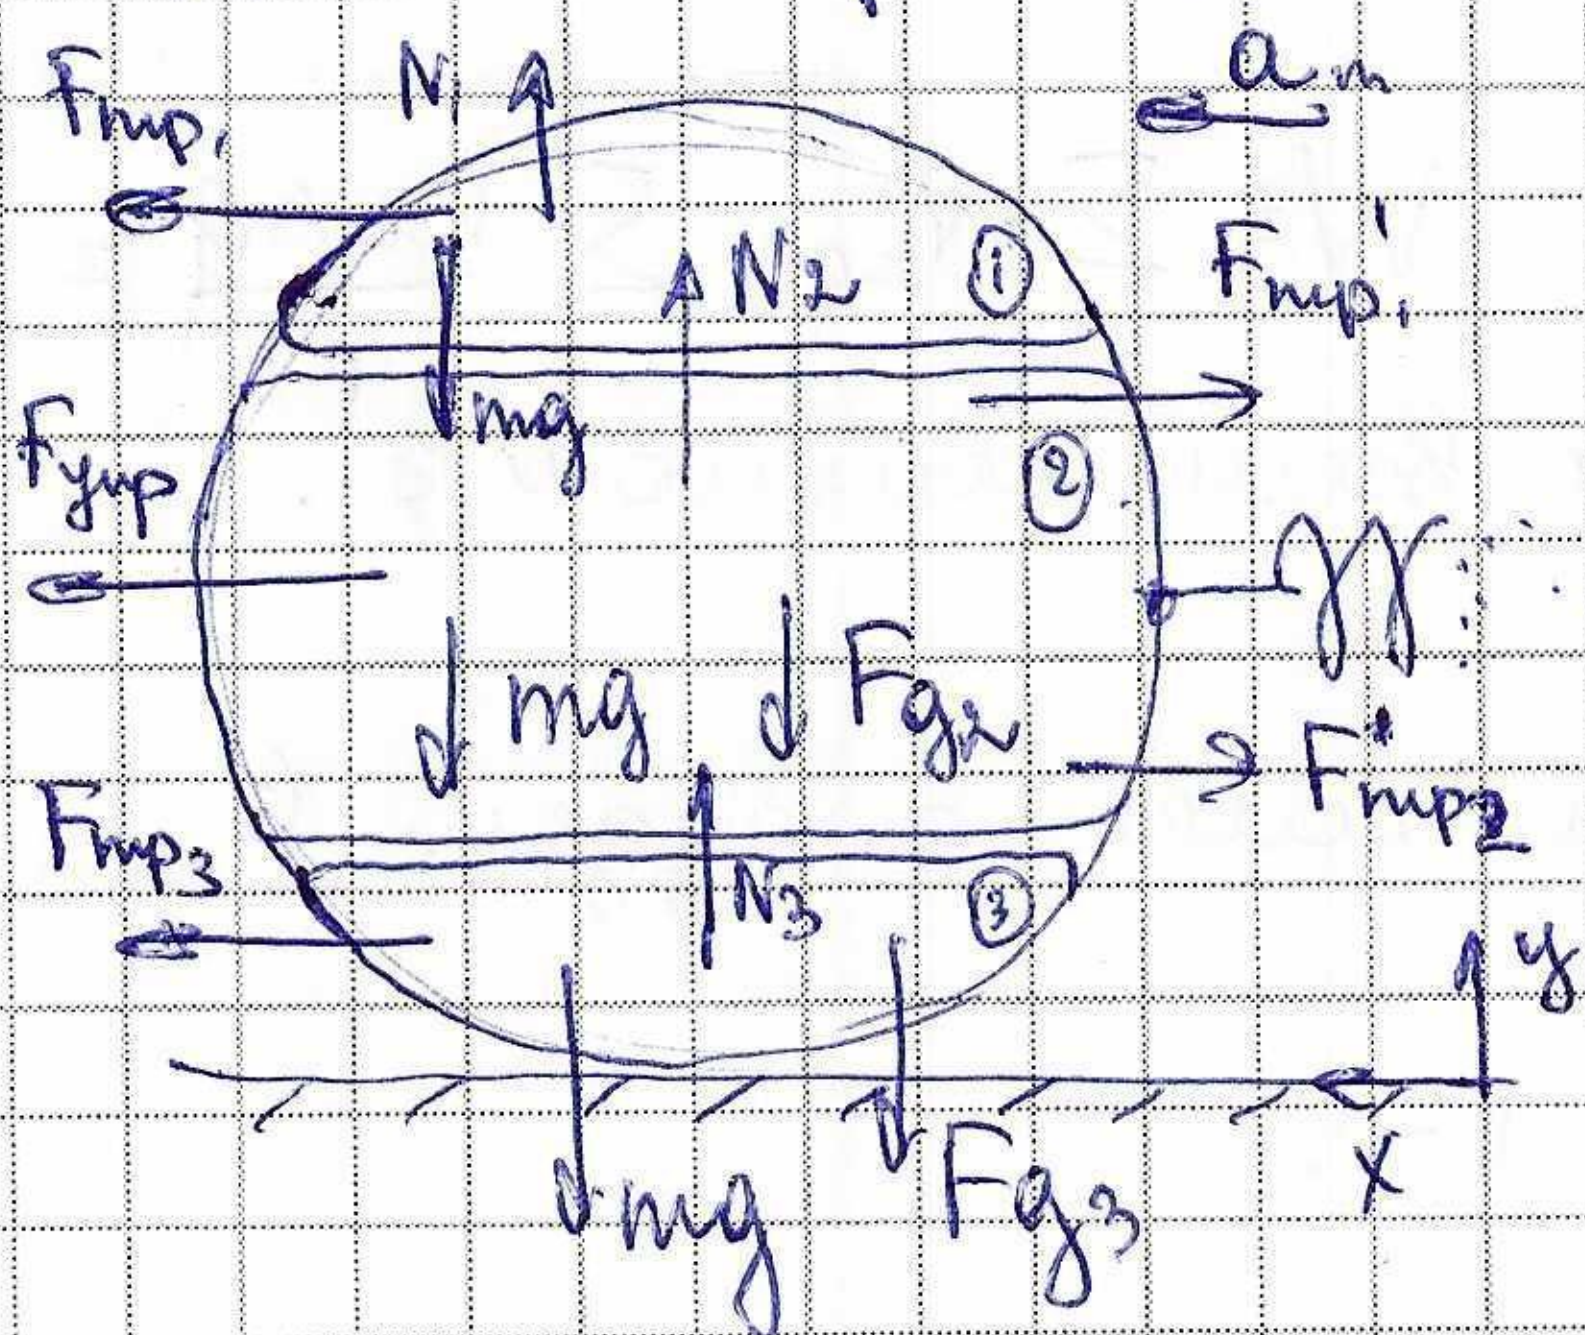 Fтр₁ N₁ aₘ
F'тр₁
N₂ ①
mg
Fупр ②
mg Fg₂
F'тр₂
Fтр₃ N₃ ③
y
x
mg Fg₃